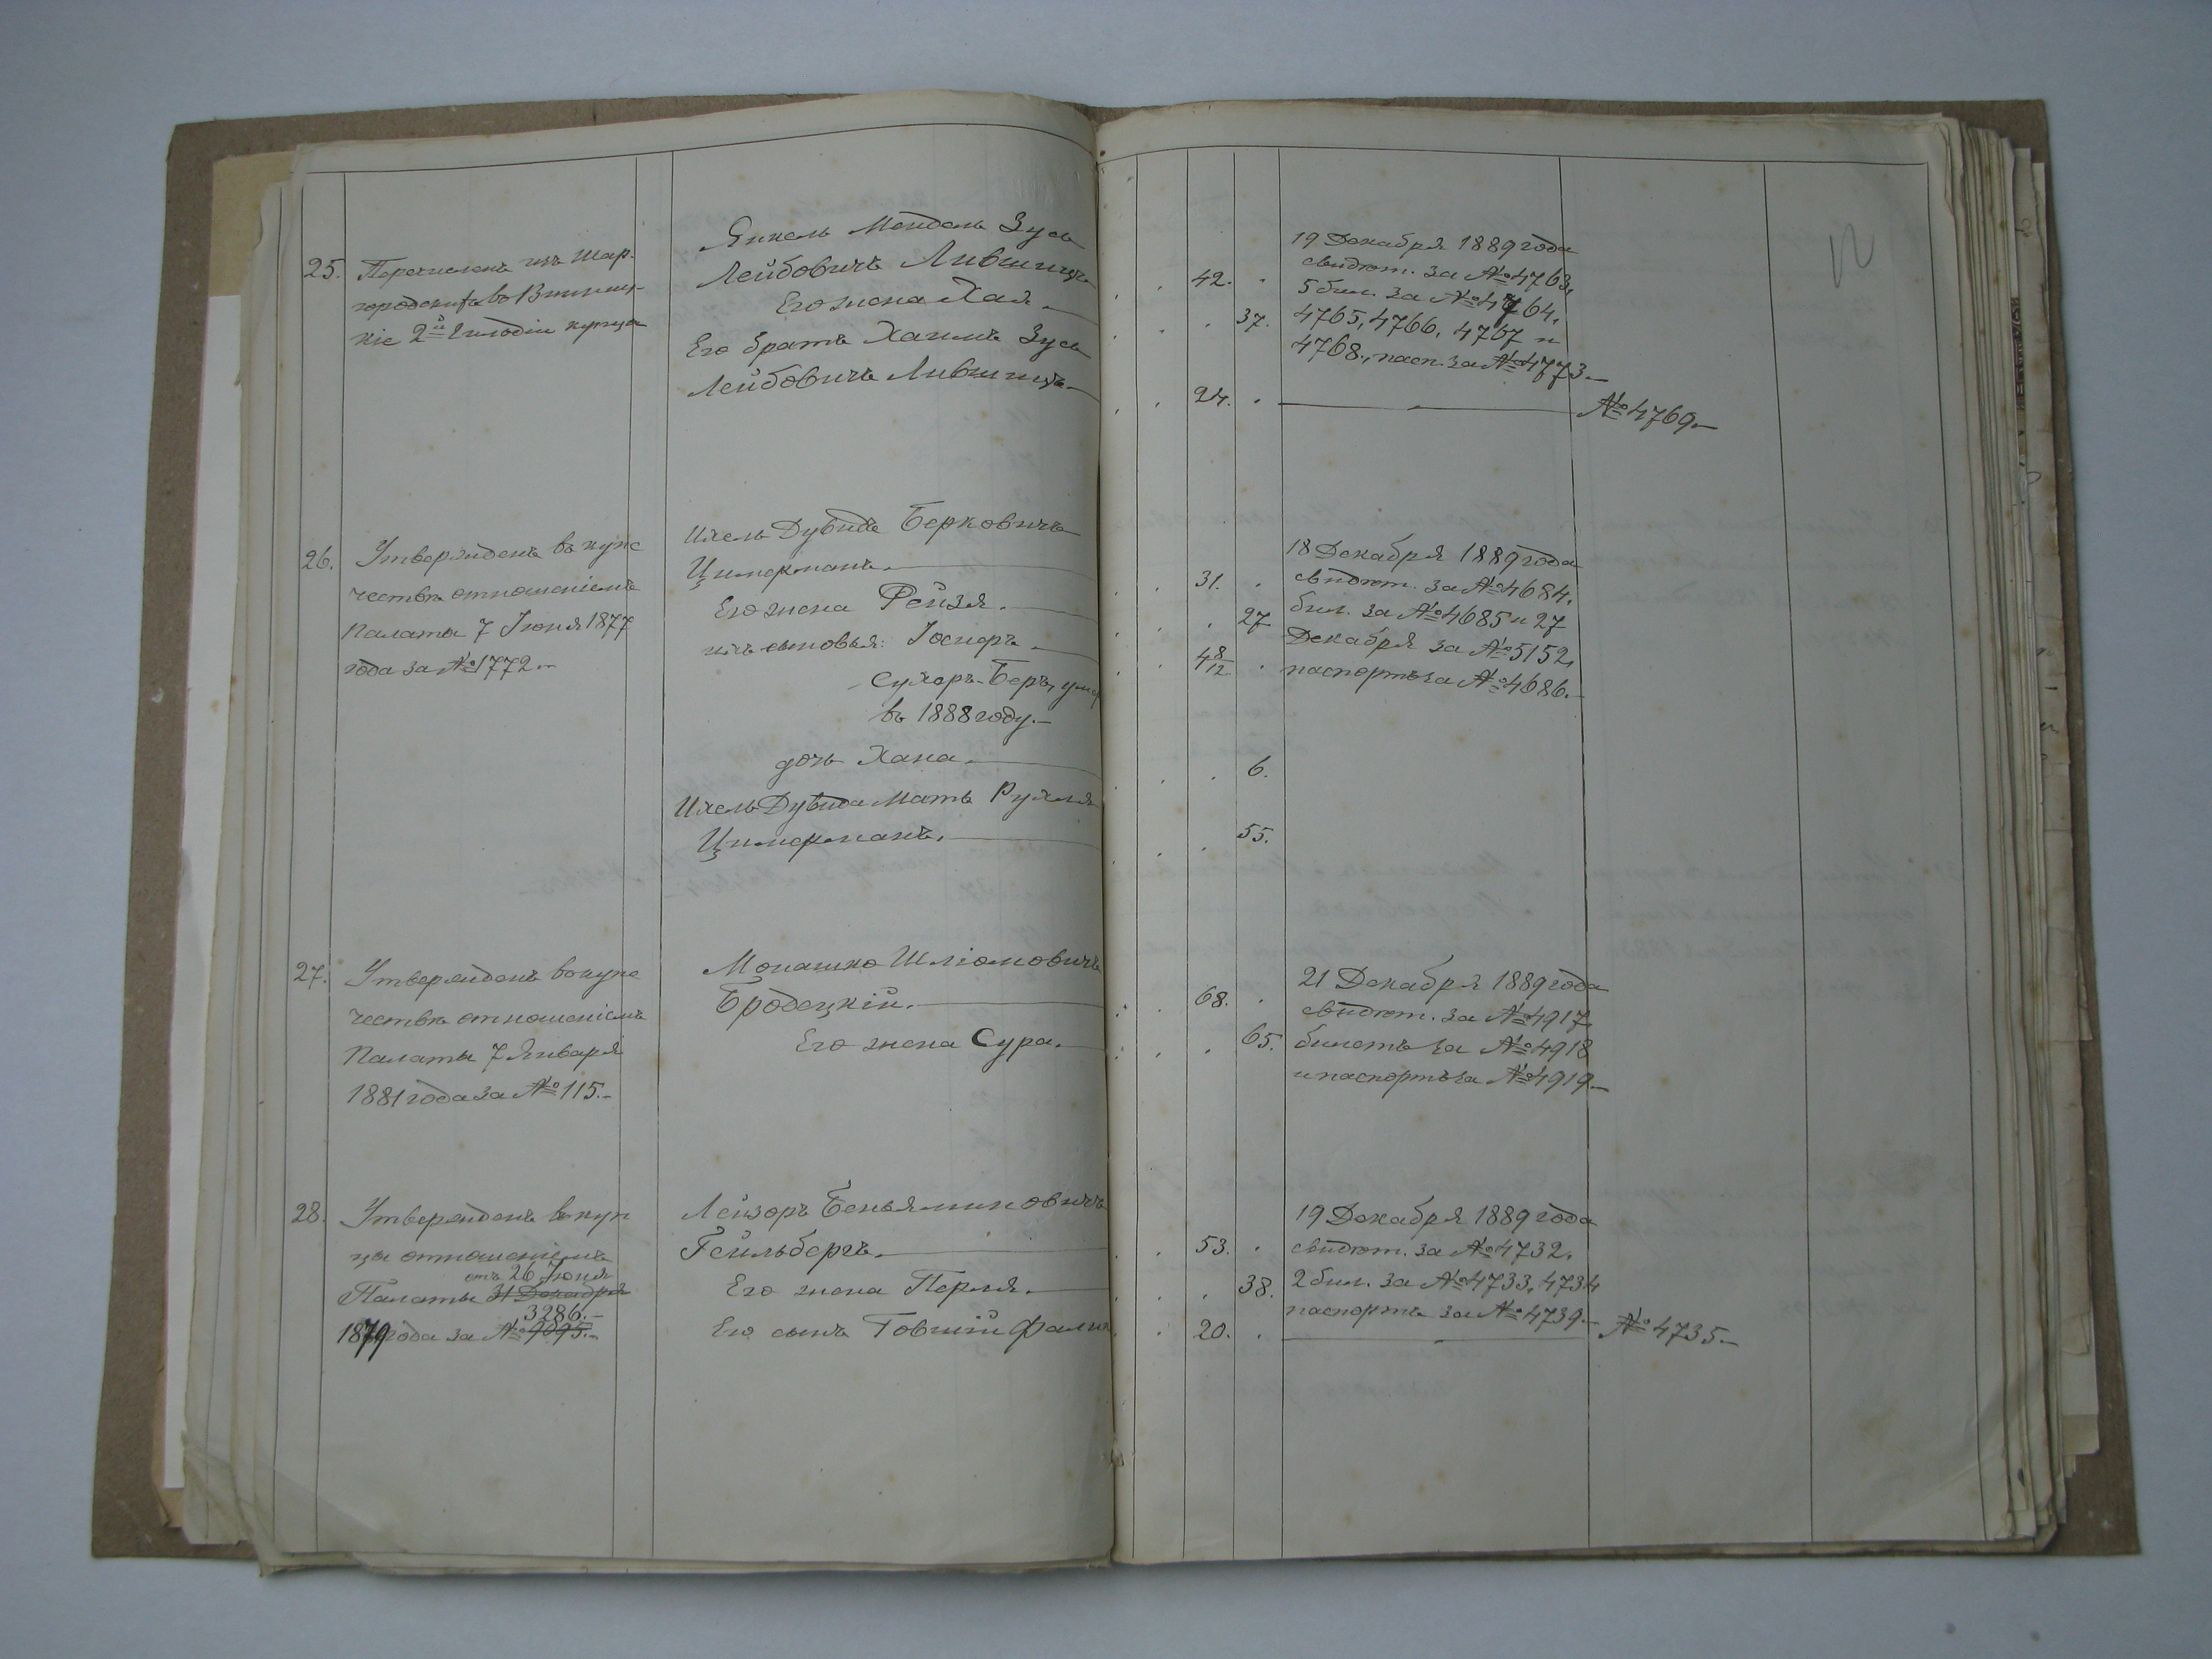 25. Перечисленъ изъ Шар-
городскихъ въ Винниц-
кіе 2й Гильдіи купцы
Янкель Мендель Зусь
Лейбовичъ Лившицъ
Его жена Хая.
Его братъ Хаимъ Зусь
Лейбовичъ Лившицъ.
42.
37.
24.
19 Декабря 1889 года
свидѣт. за №4763,
5 бил. за №4764,
4765, 4766, 4767 и
4768., пасп. за №4773.
№4769.
26. Утвержденъ въ купе
чествѣ отношеніемъ
Палаты 7 Іюня 1877
года за №1772.
Ихель Дувидъ Берковичъ
Цимерманъ.
Его жена Рейзя.
ихъ сыновья: Іосперъ
Сухеръ-Беръ, умер
въ 1888 году.
дочь Хана.
Ихель Дувида Мать Рухля
Цимерманъ.
31.
27
4 8/12
6.
55.
18 Декабря 1889 года
свидѣт. за №4684.
бил. за №4685 и 27
Декабря за №5152,
паспортъ за №4686.
27. Утвержденъ въ купе
чествѣ отношеніемъ
Палаты 7 Января
1881 года за №115.
Монашко Шліомовичъ
Бродецкій.
Его жена Сура.
68.
65.
21 Декабря 1889 года
свидѣт. за №4917
билетъ за №4918
и паспортъ за №4919
28. Утвержденъ въ куп
цы отношеніемъ
отъ 26 Іюня
Палаты 31 Декабря
3286.
1879 года за № 9095.
Лейзоръ Беньяминовичъ
Гейльбергъ.
Его жена Перля.
Его сынъ Товшій Фалик
53.
38.
20.
19 Декабря 1889 года
свидѣт. за №4732.
2 бил. за №4733, 4734
паспортъ за №4739.
№4735.